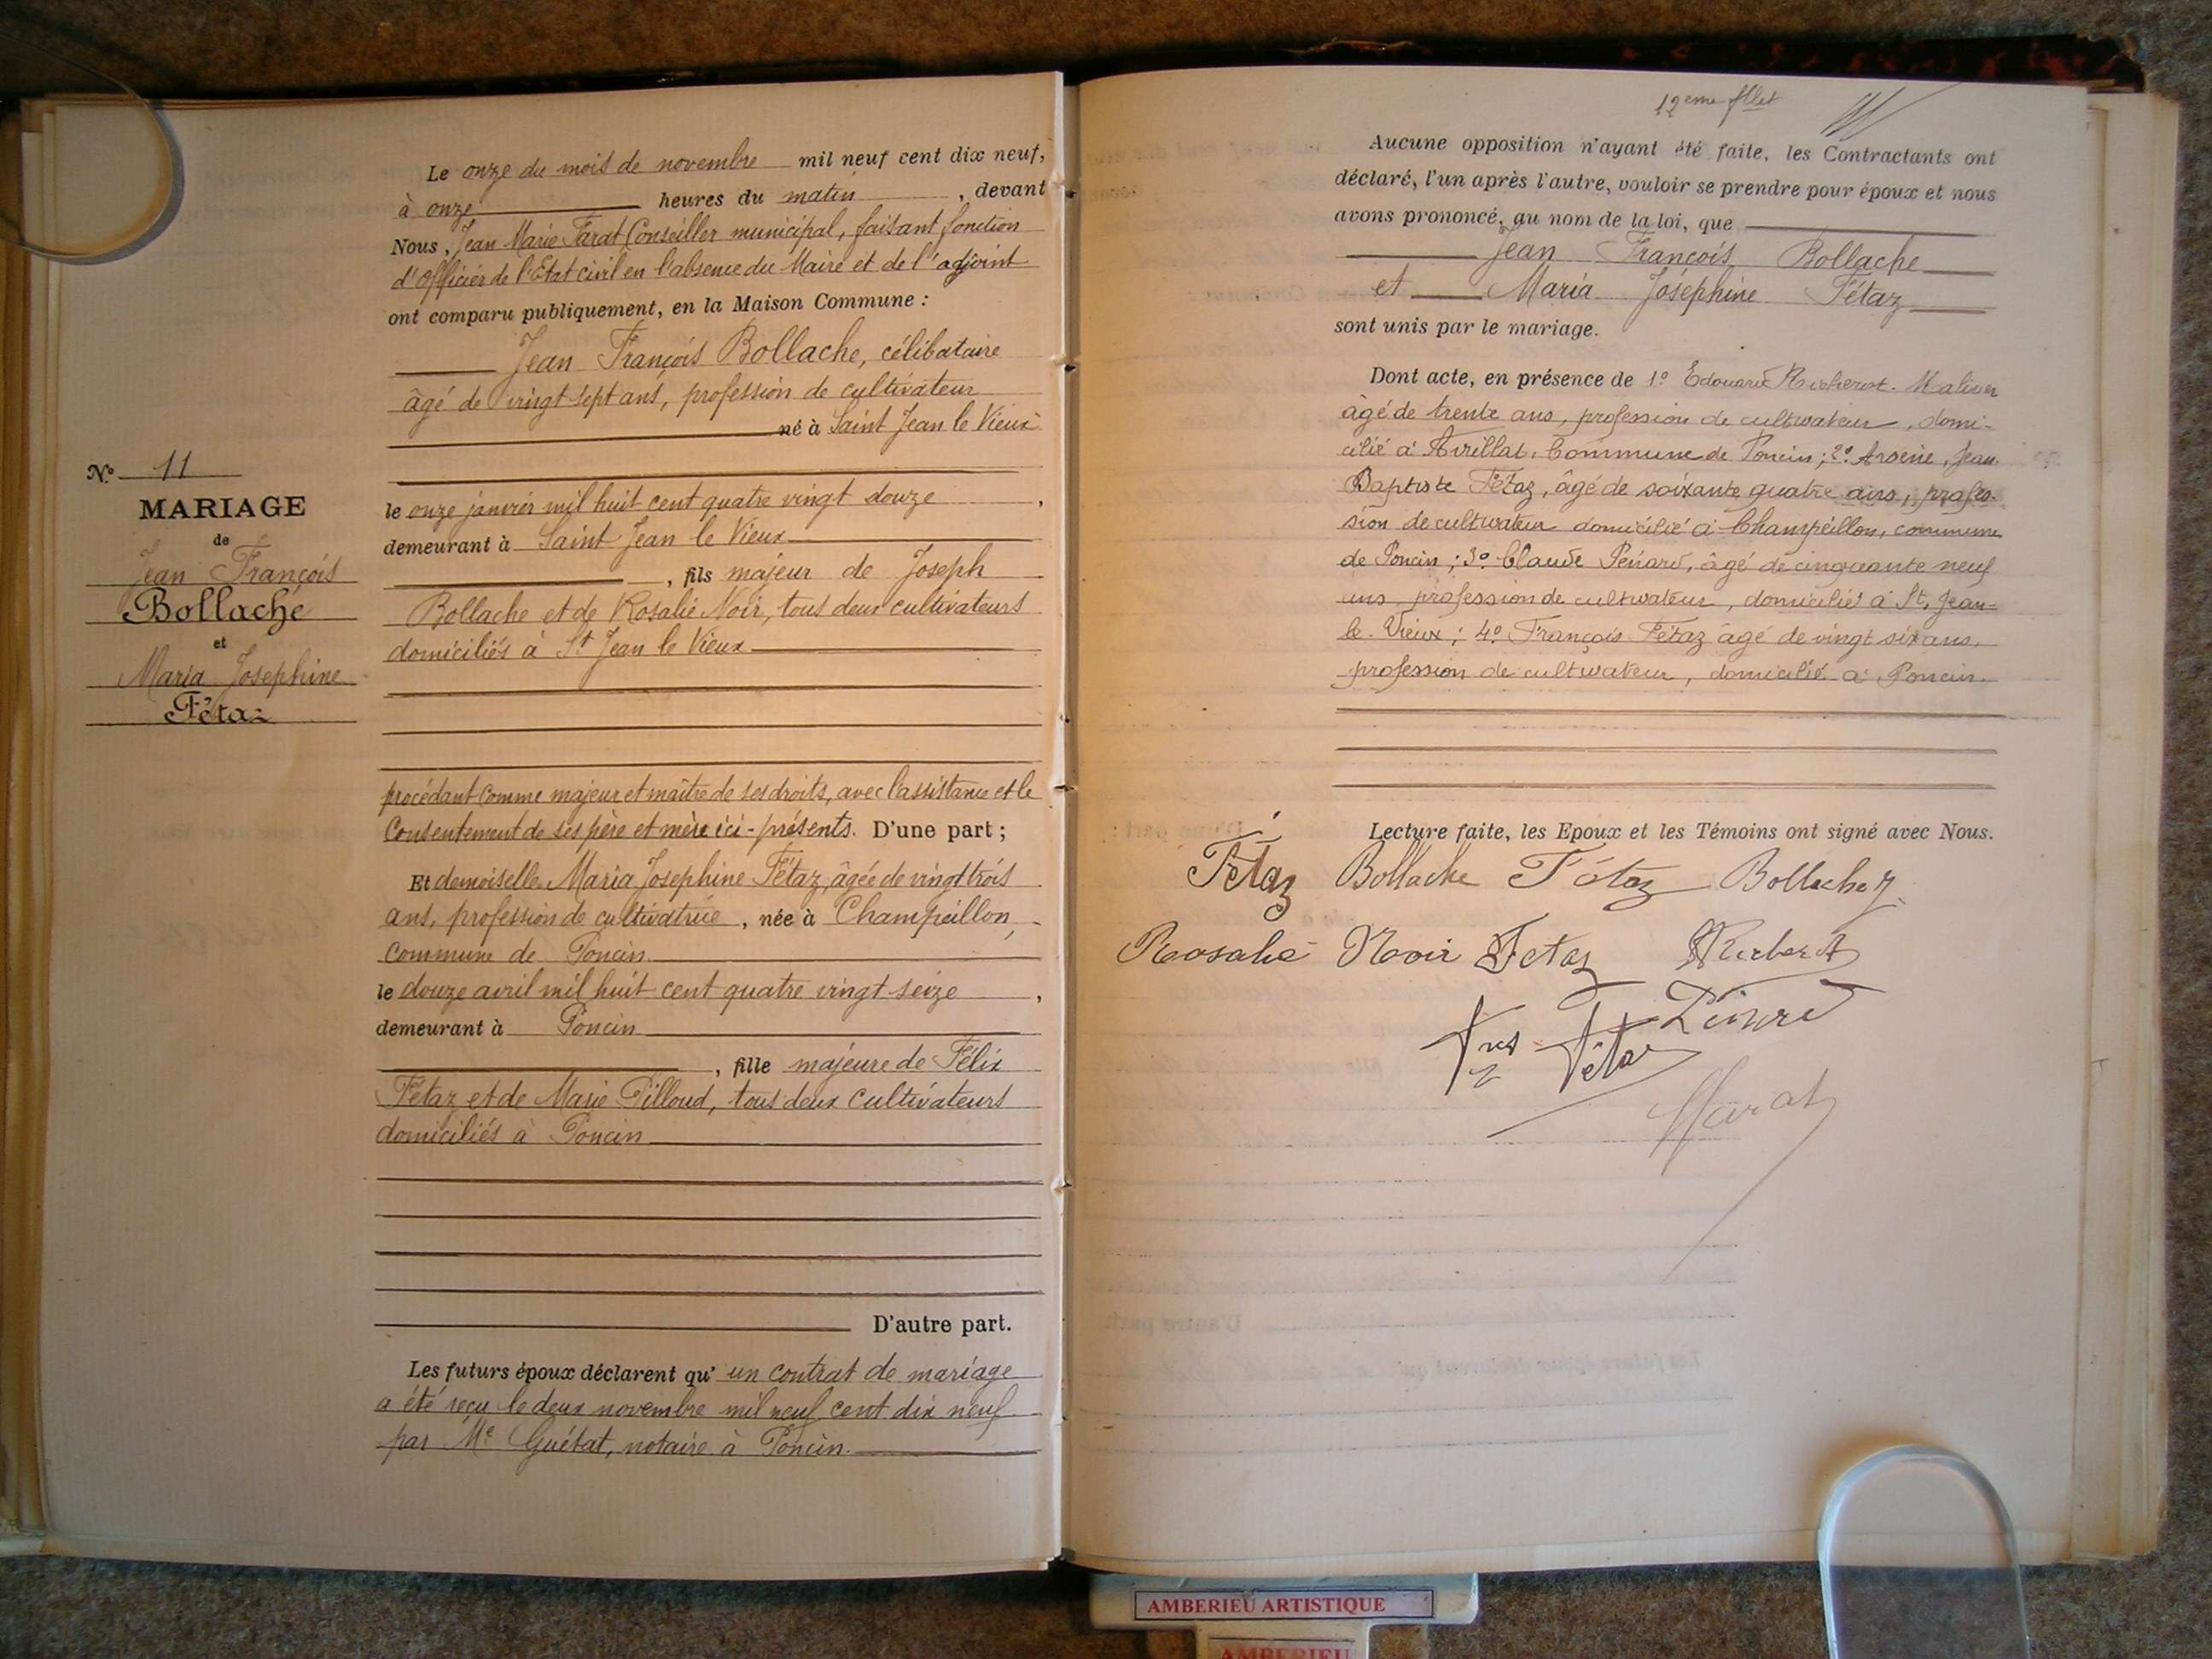 Le onze du mois de novembre mil neuf cent dix neuf,
à onze heures du matin, devant
Nous, Jean Marie Conseiller municipal, faisant fonction
d'Officier de l'Etat civil en l'absence du Maire et de l'adjoint
ont comparu publiquement, en la Maison Commune :
Jean François Bollache, célibataire
âgé de vingt sept ans, profession de cultivateur
né à Saint Jean le Vieux
le onze janvier mil huit cent quatre vingt douze,
demeurant à Saint Jean le Vieux
, fils majeur de Joseph
Bollache et de Rosalie Noir, tous deux cultivateurs
domiciliés à St Jean le Vieux
procédant comme majeur et maître de ses droits, avec l'assistance et le
Consentement de ses père et mère ici-présents. D'une part ;
Et demoiselle Maria Josephine Fétaz, âgée de vingt trois
ans, profession de cultivatrice, née à Champeillon,
commune de Poncin
le douze avril mil huit cent quatre vingt seize,
demeurant à Poncin
, fille majeure de Félix
Fétaz et de Marie Pilloud, tous deux cultivateurs
domiciliés à Poncin
D'autre part.
Les futurs époux déclarent qu'un contrat de mariage
a été reçu le deux novembre mil neuf cent dix neuf
par Me Guétat, notaire à Poncin.
No 11
MARIAGE
de
Jean François
Bollache
et
Maria Josephine
Fétaz
12eme fllet
Aucune opposition n'ayant été faite, les Contractants ont
déclaré, l'un après l'autre, vouloir se prendre pour époux et nous
avons prononcé, au nom de la loi, que
Jean François Bollache
et Maria Joséphine Fétaz
sont unis par le mariage.
Dont acte, en présence de 1º Edouard
âgé de trente ans, profession de cultivateur, domi-
cilié à Avrillat, Commune de Poncin ; 2º Arsène, Jean-
Baptiste Fétaz, âgé de soixante quatre ans, profes-
sion de cultivateur domicilié à Champeillon, commune
de Poncin ; 3º Claude Pénard, âgé de cinquante neuf
ans, profession de cultivateur, domicilié à St. Jean-
le-Vieux ; 4º François Fétaz âgé de vingt six ans,
profession de cultivateur, domicilié à Poncin.
Lecture faite, les Epoux et les Témoins ont signé avec Nous.
Fétaz Bollache Fétaz Bollache J
Rosalie Noir Fetaz
Fçs Fétaz
AMBERIEU ARTISTIQUE
AMBERIEU